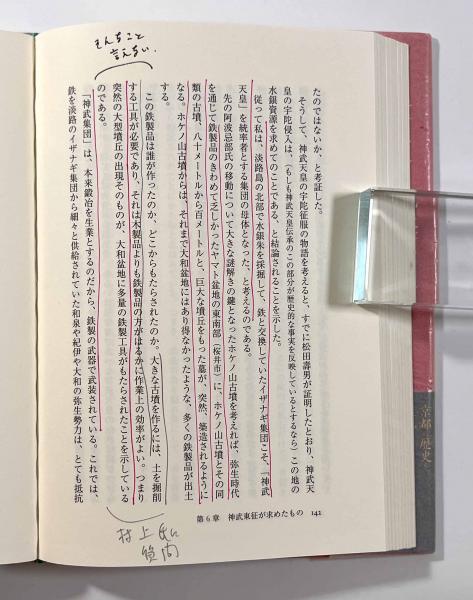 たのではないか、と考証した。
そうして、神武天皇の宇陀征服の物語を考えると、すでに松田壽男が証明したとおり、神武天
皇の宇陀侵入は、（もしも神武天皇伝承のこの部分が歴史的な事実を反映しているとするなら）この地の
水銀資源を求めてのことである、と結論されることを示した。
従って私は、淡路島の北部で水銀朱を採掘して、鉄と交換していたイザナギ集団こそ、「神武
天皇」を統率者とする集団の母体となった、と考えるのである。
先の阿波忌部氏の移動について大きな謎解きの鍵となったホケノ山古墳を考えれば、弥生時代
を通じて鉄製品のきわめて乏しかったヤマト盆地の東南部（桜井市）に、ホケノ山古墳とその同
類の古墳、八十メートルから百メートルと、巨大な墳丘をもった墓が、突然、築造されるように
なる。ホケノ山古墳からは、それまで大和盆地にはあり得なかったような、多くの鉄製品が出土
する。
この鉄製品は誰が作ったのか、どこからもたらされたのか。大きな古墳を作るには、土を掘削
する工具が必要であり、それは木製品よりも鉄製品の方がはるかに作業上の効率がよい。つまり
突然の大型墳丘の出現そのものが、大和盆地に多量の鉄製工具がもたらされたことを示している
のである。
「神武集団」は、本来鍛冶を生業とするのだから、鉄製の武器で武装されている。これでは、
鉄を淡路のイザナギ集団から細々と供給されていた和泉や紀伊や大和の弥生勢力は、とても抵抗
第6章　神武東征が求めたもの　142
そんなこと
言えない。
村上氏に
質問
京都　歴史